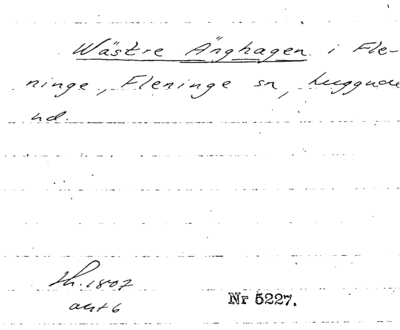 Wästre Änghagen i Fle-
ninge, Fleninge sn, Luggude
hd.
Lh. 1807
akt 6
Nr 5227.